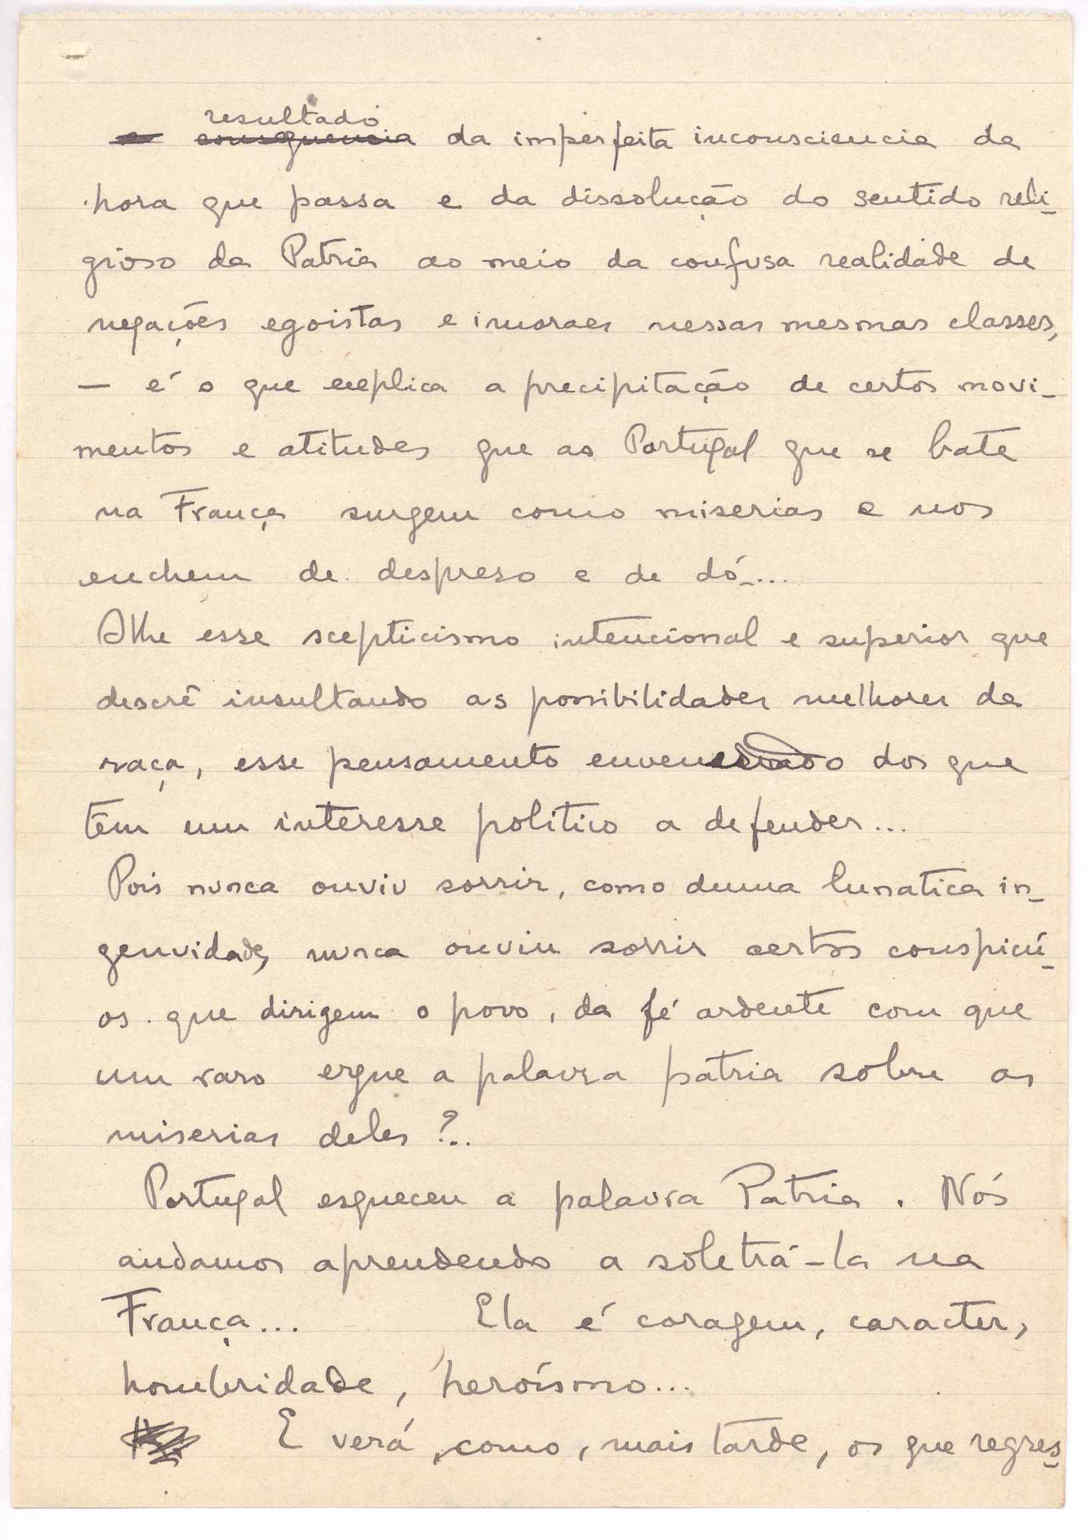 resultado
e consequencia da imperfeita inconsciencia da
hora que passa e da dissolução do sentido reli-
gioso da Patria ao meio da confusa realidade de
negações egoistas e imoraes nessas mesmas classes,
— é o que explica a precipitação de certos movi-
mentos e atitudes que ao Portugal que se bate
na França surgem como miserias e nos
enchem de despreso e de dó...
Olhe esse scepticismo intencional e superior que
descrê insultando as possibilidades melhores da
raça, esse pensamento envenenado dos que
têm um interesse politico a defender...
Pois nunca ouviu sorrir, como duma lunatica in-
genuidade, nunca ouviu sorrir certos conspicú-
os que dirigem o povo, da fé ardente com que
um raro ergue a palavra patria sobre as
miserias deles?..
Portugal esqueceu a palavra Patria. Nós
andamos aprendendo a soletrá-la na
França... Ela é coragem, caracter,
hombridade, heroísmo...
E verá, como, mais tarde, os que regres-